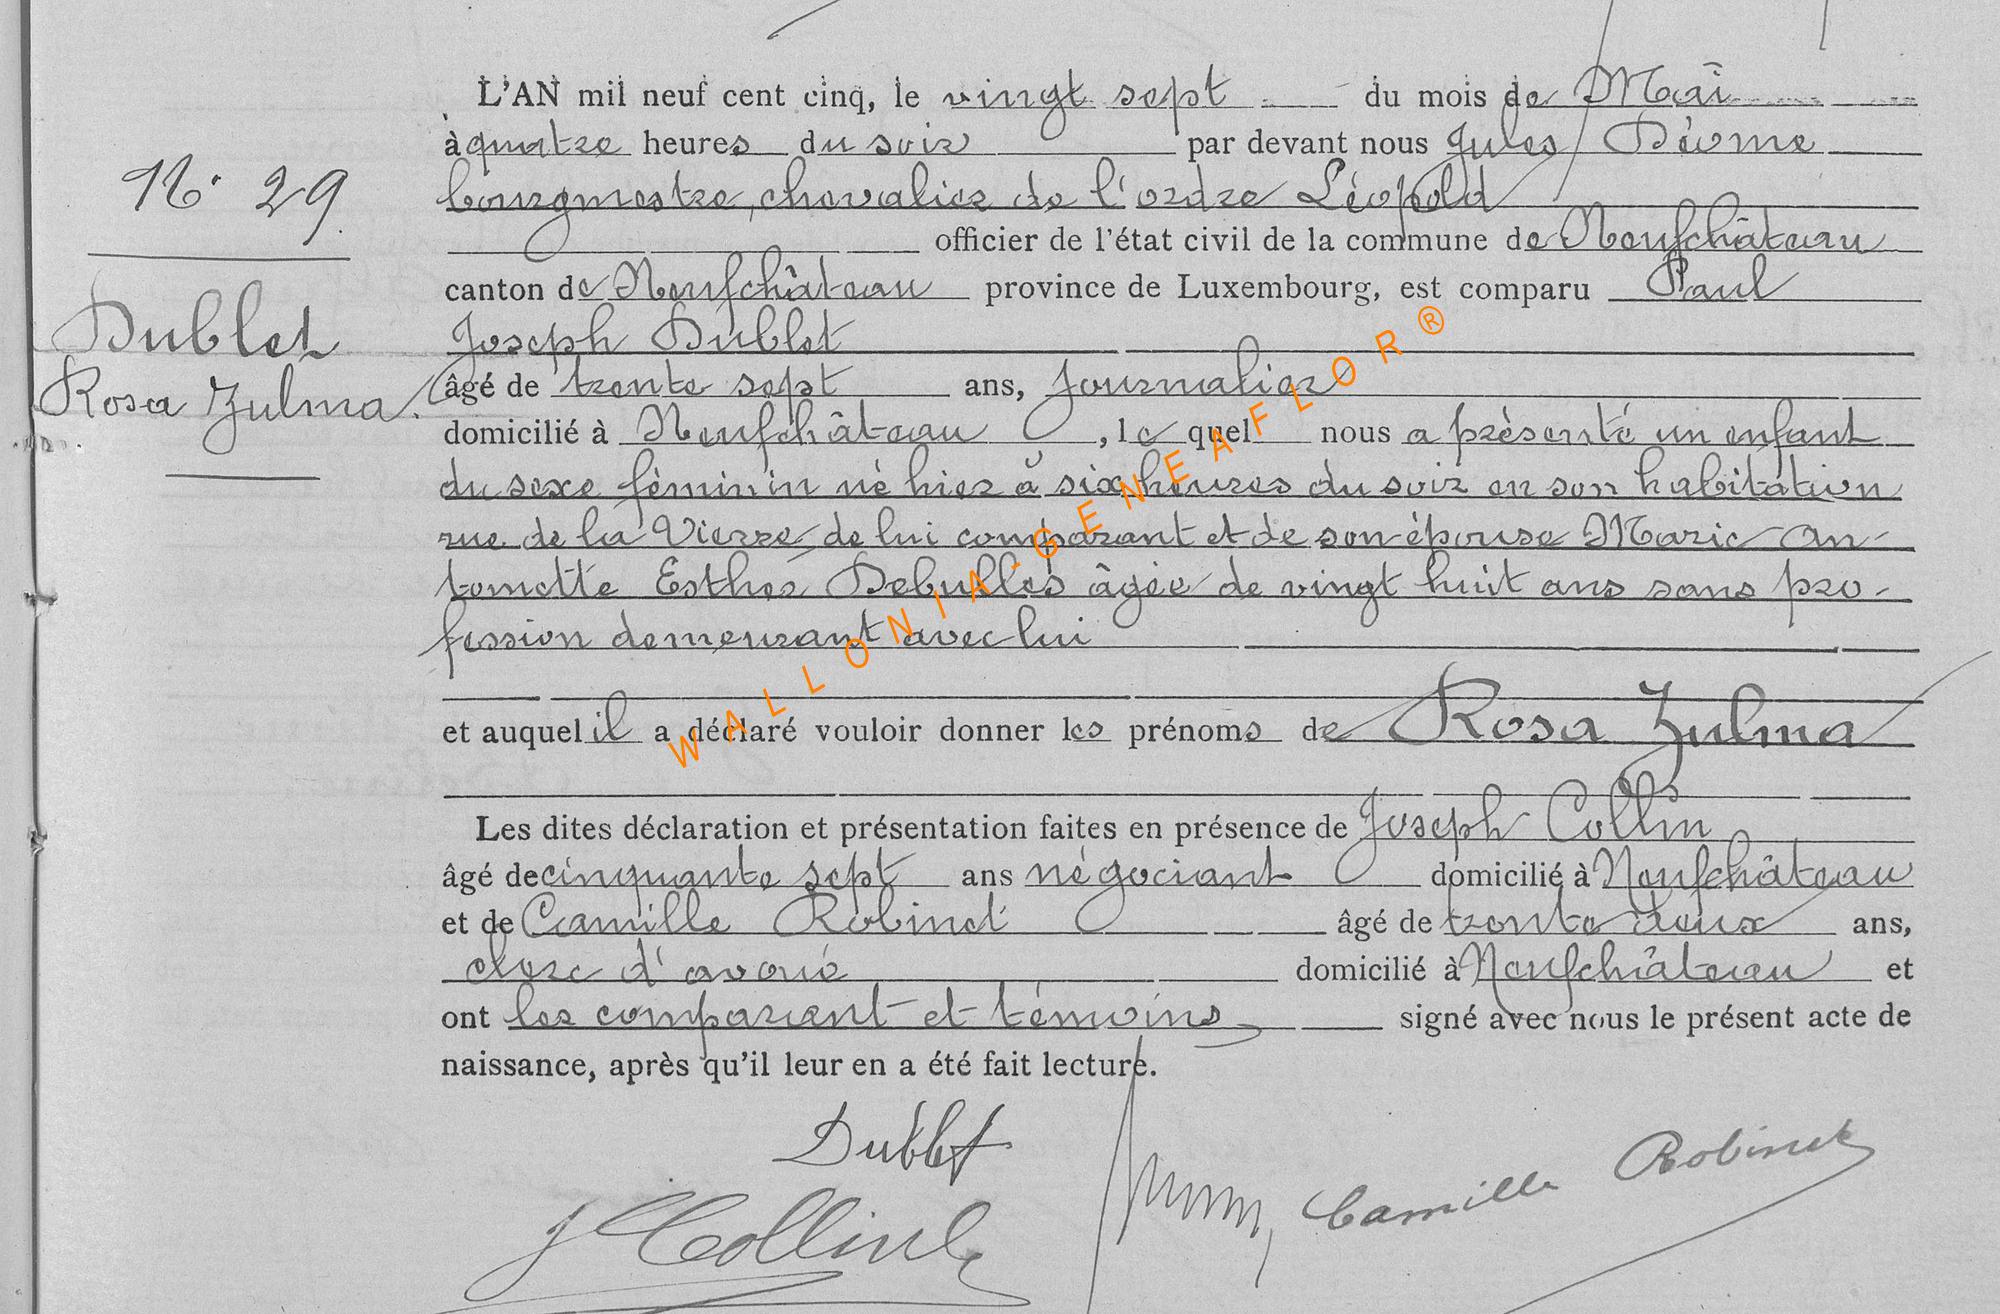 L'AN mil neuf cent cinq, le vingt sept du mois de Mai
à quatre heures du soir par devant nous Jules
bourgmestre, chevalier de l'ordre Léopold
officier de l'état civil de la commune de Neufchâteau
canton de Neufchâteau province de Luxembourg, est comparu Paul
Joseph Dublet
âgé de trente sept ans, journalier
domicilié à Neufchâteau, le quel nous a présenté un enfant
du sexe féminin né hier à six heures du soir en son habitation
rue de la Vierre de lui comparant et de son épouse Marie An-
toinette Esther âgée de vingt huit ans sans pro-
fession demeurant avec lui
et auquel il a déclaré vouloir donner les prénoms de Rosa Zulma
Les dites déclaration et présentation faites en présence de Joseph Collin
âgé de cinquante sept ans négociant domicilié à Neufchâteau
et de Camille Robinet âgé de trente deux ans,
clerc d'avoué domicilié à Neufchâteau et
ont les comparant et témoins signé avec nous le présent acte de
naissance, après qu'il leur en a été fait lecture.
N° 29
Dublet
Rosa Zulma.
Dublet
J Collin
Camille Robinet
WALLONIA-GENEAFLOR®